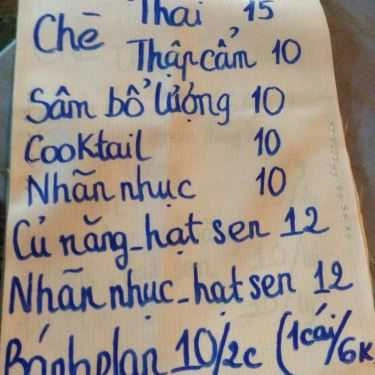 Chè Thai 15
Thập cẩm 10
Sâm bổ lượng 10
Cooktail 10
Nhãn nhục 10
Củ năng_hạt sen 12
Nhãn nhục_hạt sen 12
Bánh plan 10/2c (1 cái/6K